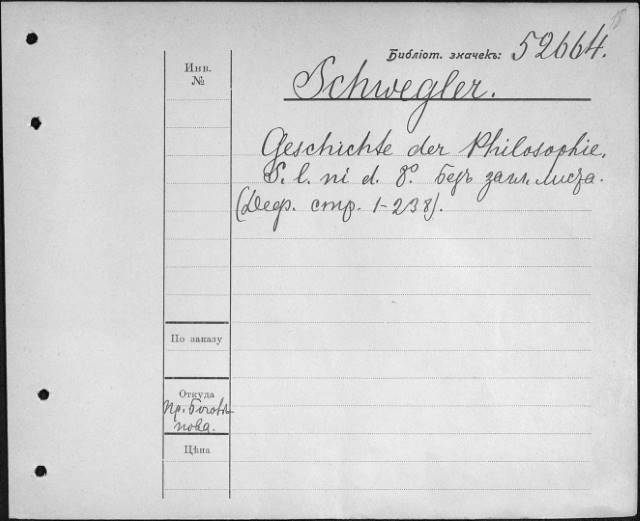 Библіот. значекъ: 52664.
Инв.
№
Schwegler.
Geschichte der Philosophie.
S. l. ni d. 8º. Безъ загл. листа.
(Деф. стр. 1-238).
По заказу
Откуда
Пр.
нова.
Цѣна